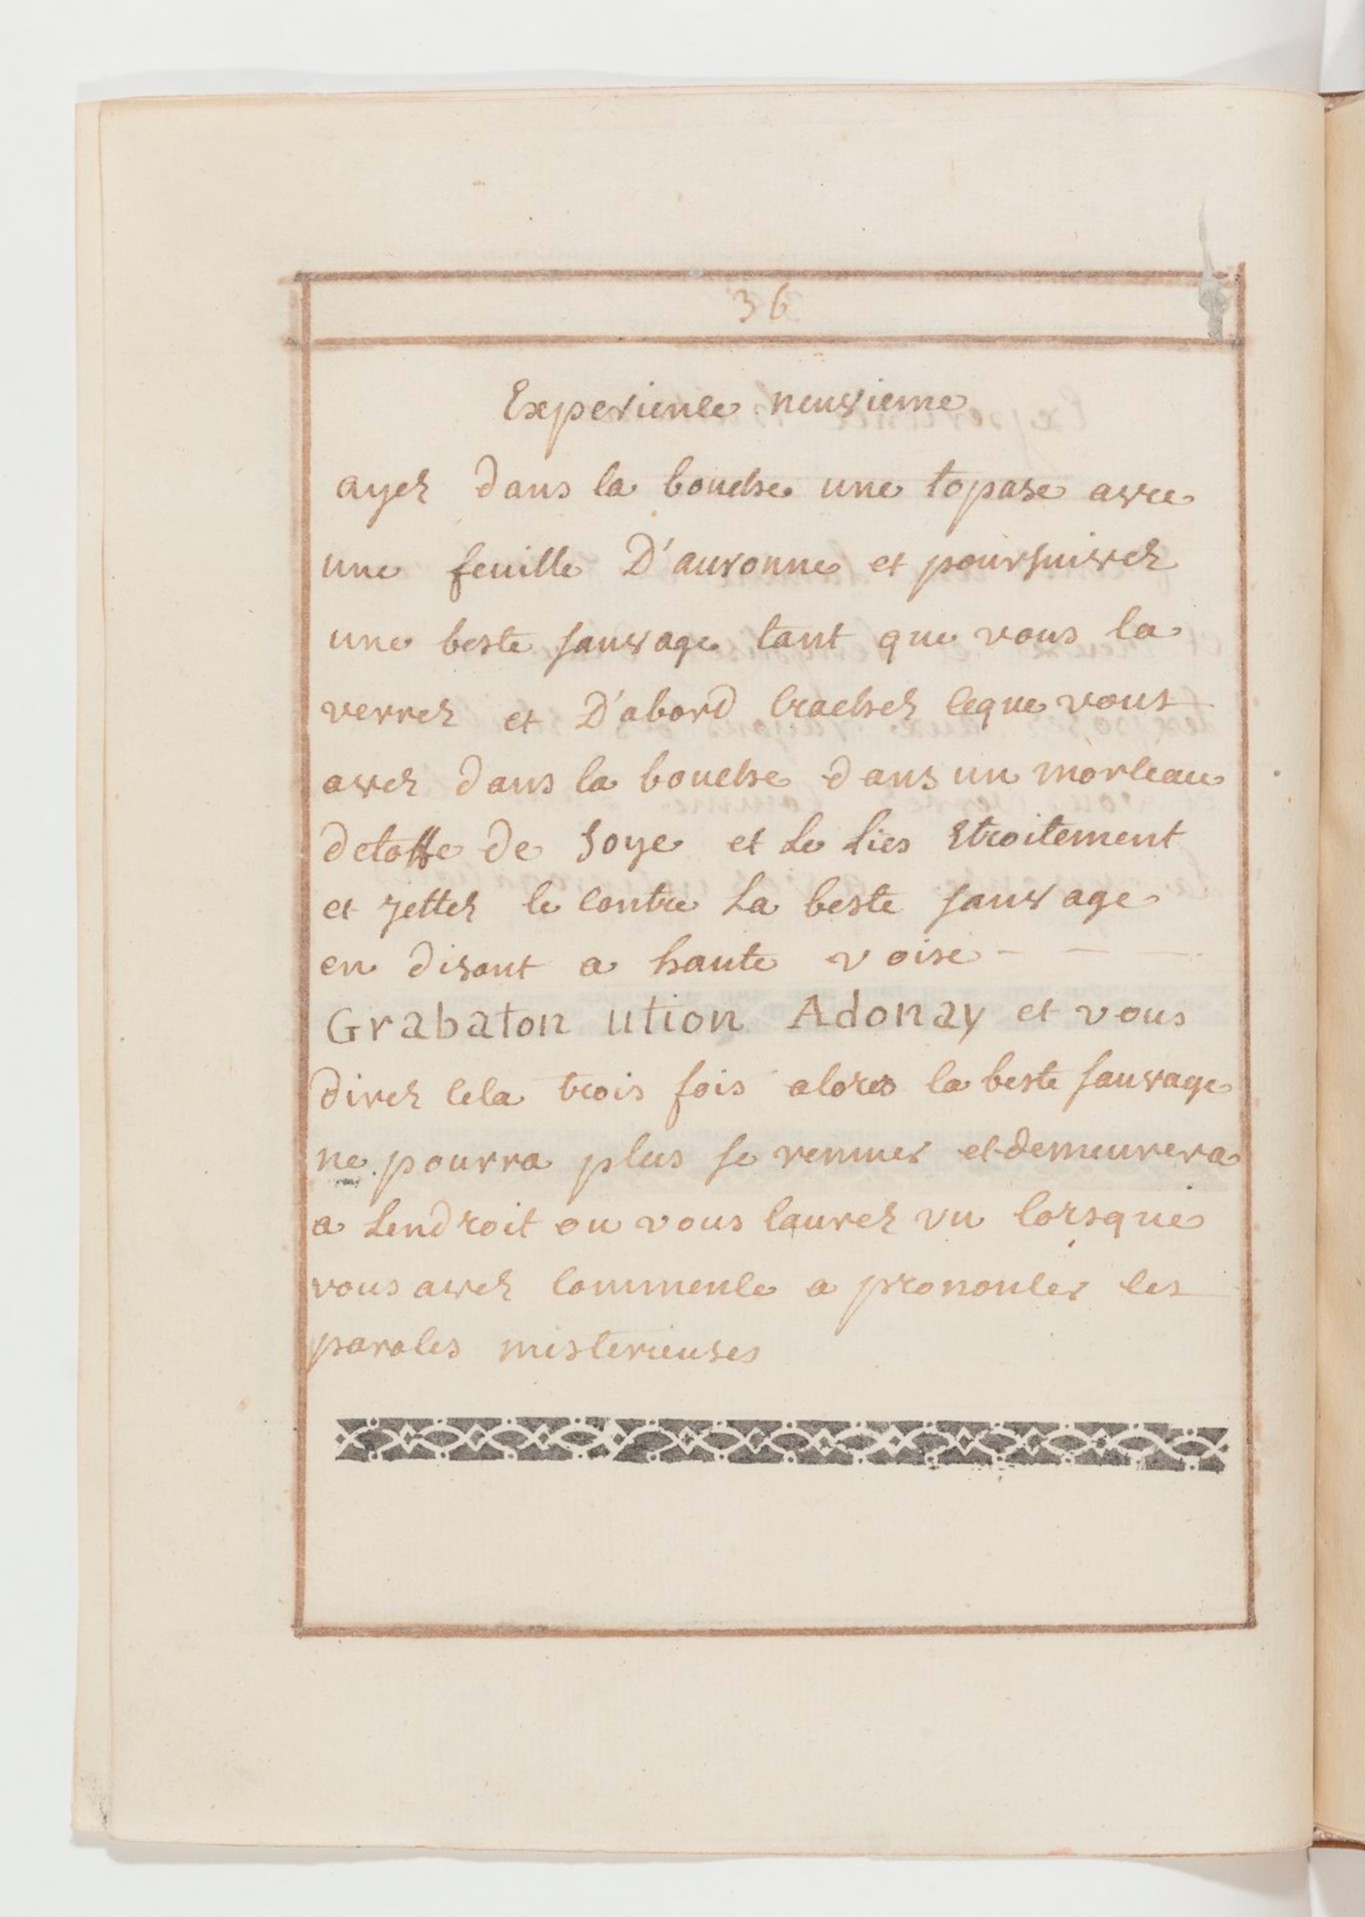 36
Experience neuvieme
ayez dans la bouche une topase avec
une feuille D'auronne et poursuivez
une beste sauvage tant que vous la
verrez et D'abord crachez ceque vous
avez dans la bouche dans un morceau
detoffe de soye et Le Lies etroitement
et jettez le contre La beste sauvage
en disant a haute voise - - -
Grabaton ution Adonay et vous
direz cela trois fois alores la beste sauvage
ne pourra plus se remuer et demeurera
a Lendroit ou vous laurez vu lorsque
vous avez commence a prononcer les
paroles misterieuses